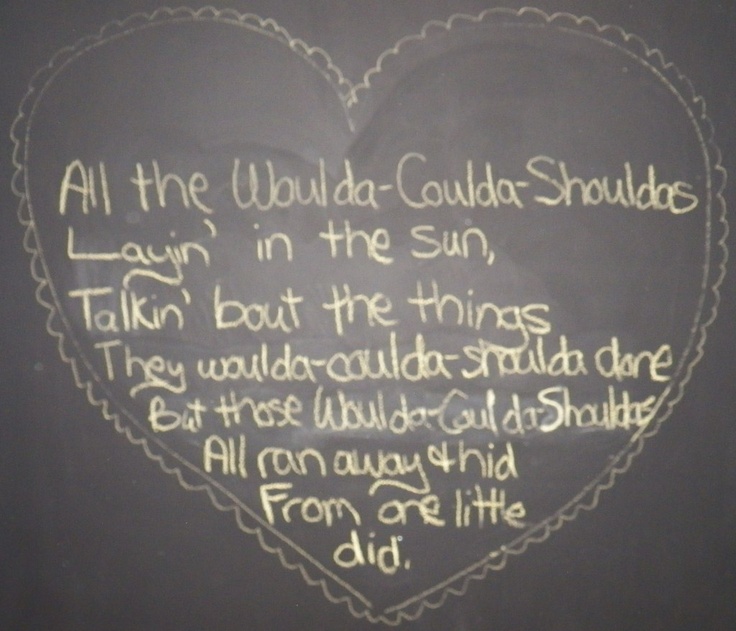 All the Woulda-Coulda-Shouldas
Layin' in the sun,
Talkin' bout the things
They woulda-coulda-shoulda done
But those Woulda-Coulda-Shouldas
All ran away & hid
From one little
did.